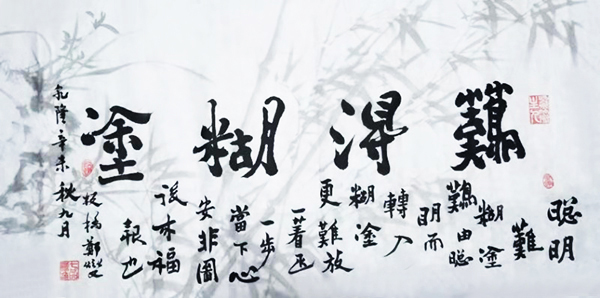 難得糊塗
聰明
難
糊塗
難由聰
明而
轉入
糊塗
更難放
一著退
一步
當下心
安非圖
後來福
報也
乾隆辛未秋九月
板橋鄭燮